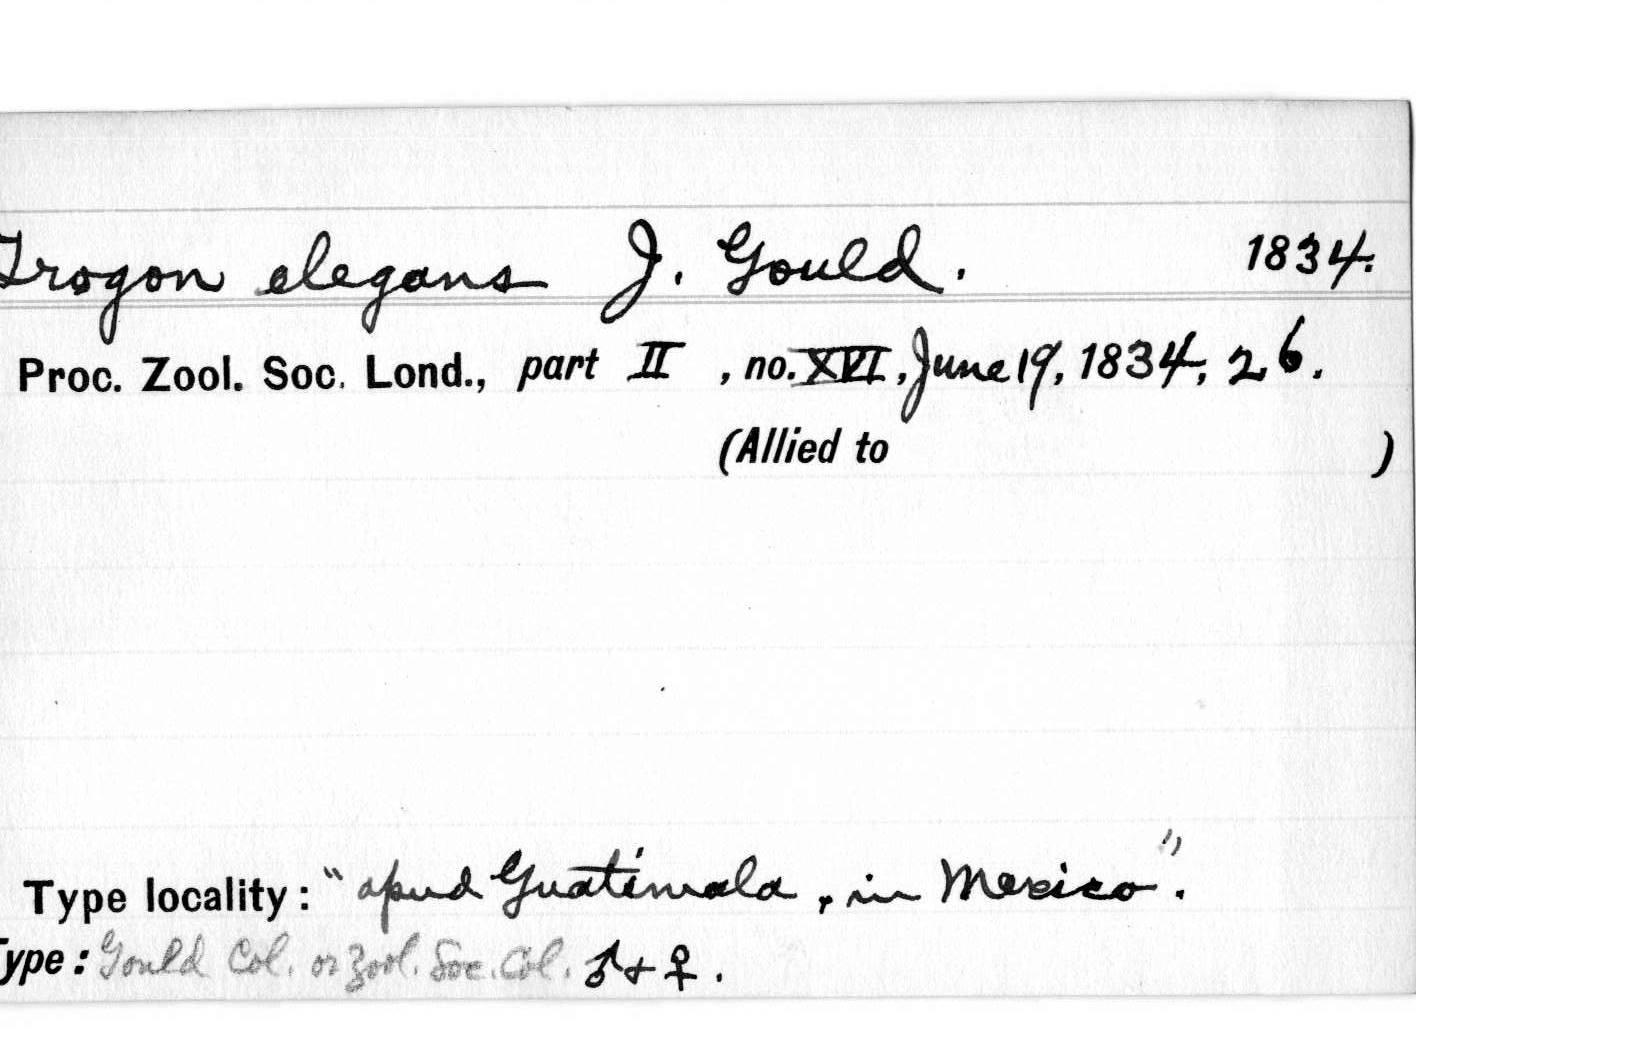 Trogon elegans J. Gould. 1834.
Proc. Zool. Soc. Lond., part II , no. XVI, June 19, 1834, 26.
(Allied to )
Type locality: "apud Guatimala, in Mexico".
Type: Gould Col. or Zool. Soc. Col. ♂ + ♀.